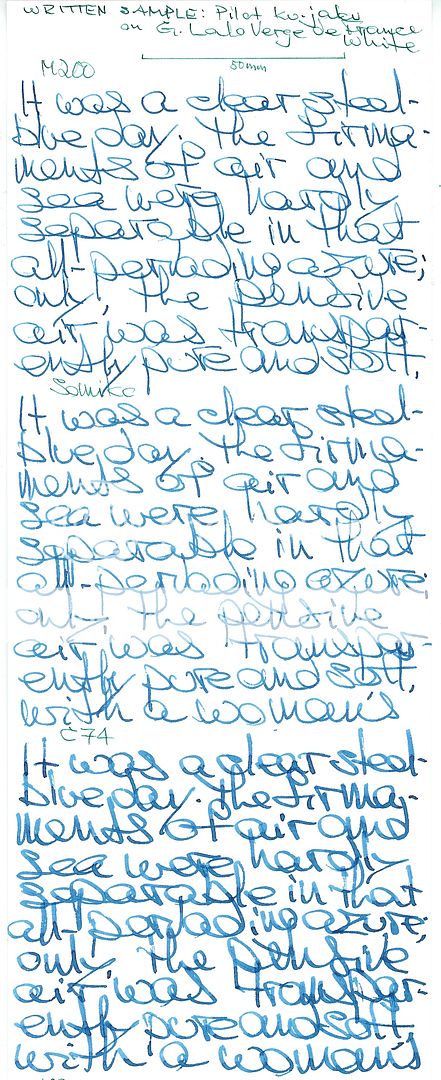 WRITTEN SAMPLE: Pilot ku-jaku
on G. Lalo Verge de France
White
50mm
M200
It was a clear steel-
blue day. The firma-
ments of air and
sea were hardly
separable in that
all-pervading azure;
only, the pensive
air was transpar-
ently pure and soft,
Somiko
It was a clear steel-
blue day. The firma-
ments of air and
sea were hardly
separable in that
all-pervading azure;
only, the pensive
air was transpar-
ently pure and soft,
with a woman's
C74
It was a clear steel-
blue day. The firma-
ments of air and
sea were hardly
separable in that
all-pervading azure;
only, the pensive
air was transpar-
ently pure and soft
with a woman's